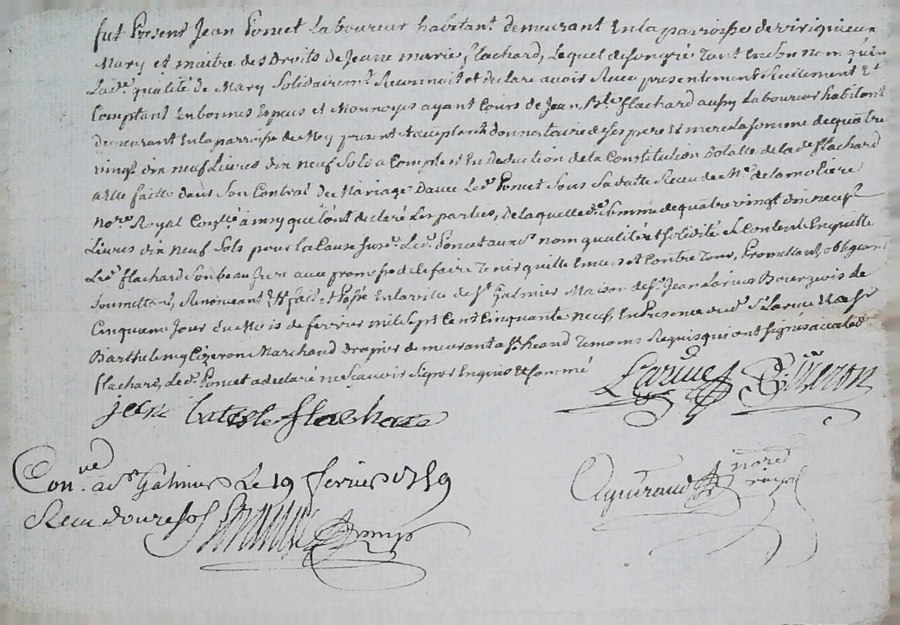 fut Present Jean Poncet Laboureur habitant demeurant En la parroisse de virigneux
Mary et maitre des Droits de Jeanne marie flachard, Lequel de son gré tant En son nom qu'en
La de. qualité de Mary Solidairemt. Reconnoit et declare avoir Receu presentement Reellement et
Comptant En bonnes Especes et Monnoyes ayant Cours de Jean Bte. flachard aussy Laboureur habitant
demeurant En la parroisse de present et acceptant donnataire de ses pere et mere la somme de quatre
vingt dix neuf Livres dix neuf Sols a Compte et En deduction de la Constitution Dotalle de la de. flachard
a Elle faitte dans Son Contrat de Mariage Davec Led. Poncet Sous Sa datte Receu de Me. delamoliere
Nore. Royal ainsy que l'ont declaré Les parties, de laquelle de. somme de quatre vingt dix neuf
Livres dix neuf Sols pour la Cause susd. Led. Poncet aux d. nom qualité et solidité se Contente En quitte
Led. flachard Son beau frere avec promesse de le faire tenir quitte Envers et Contre tous, Promettant, obligeant
Soumettant, Renonceant &a fait et Passé En la ville de St. Galmier Maison de Sr. Jean Larue Bourgeois Le
Cinquieme Jour du Mois de fevrier mil Sept Cent Cinquante Neuf, En Presence dud. Sr. Larue & de Sr.
Barthelemy Cizeron Marchand drapier demeurant a St. heand temoins Requis qui ont signés avec led.
flachard, Led. Poncet a declaré ne Scavoir Signer Enquis et Sommé
jean batiste flachard
Larue Cizeron
Conve. a St. Galmier Le 19 fevrier 1759
Receu douze sols
nore. royal